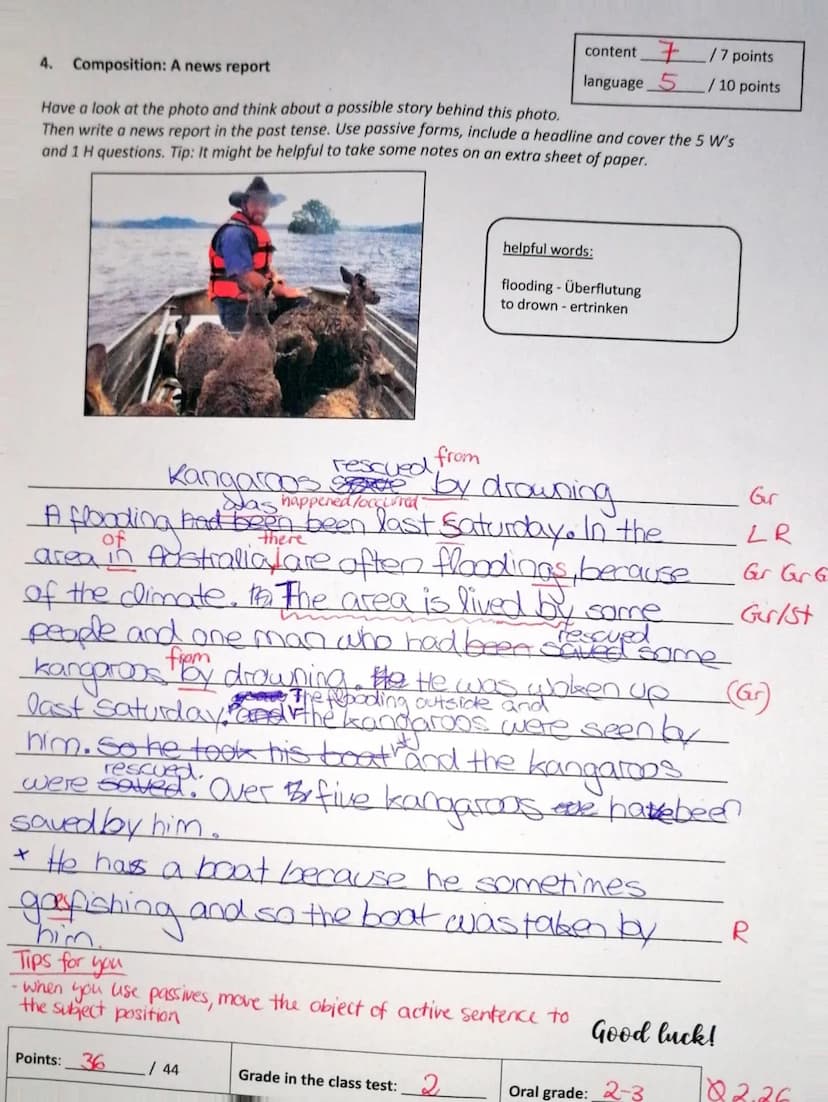 content 7 / 7 points
language 5 / 10 points
4. Composition: A news report
Have a look at the photo and think about a possible story behind this photo.
Then write a news report in the past tense. Use passive forms, include a headline and cover the 5 W's
and 1 H questions. Tip: It might be helpful to take some notes on an extra sheet of paper.
helpful words:
flooding - Überflutung
to drown - ertrinken
rescued from
Kangaroos by drowning Gr
was happened/occurred
A flooding had been been last Saturday. In the L R
of there
area in Australia are often floodings, because Gr Gr G
of the climate. The area is lived by some Gr/St
rescued
people and one man who had been saved some
from
kangaroos by drowning. He He was woken up (Gr)
The flooding outside and
last saturday. and the kangaroos were seen by
him. So he took his boat * and the kangaroos
rescued.
were saved. Over five kangaroos have been
saved by him.
* He has a boat because he sometimes
goes fishing and so the boat was taken by R
him.
Tips for you
- when you use passives, move the object of active sentence to
the subject position
Good luck!
Points: 36 / 44
Grade in the class test: 2
Oral grade: 2-3
Ø 2.26